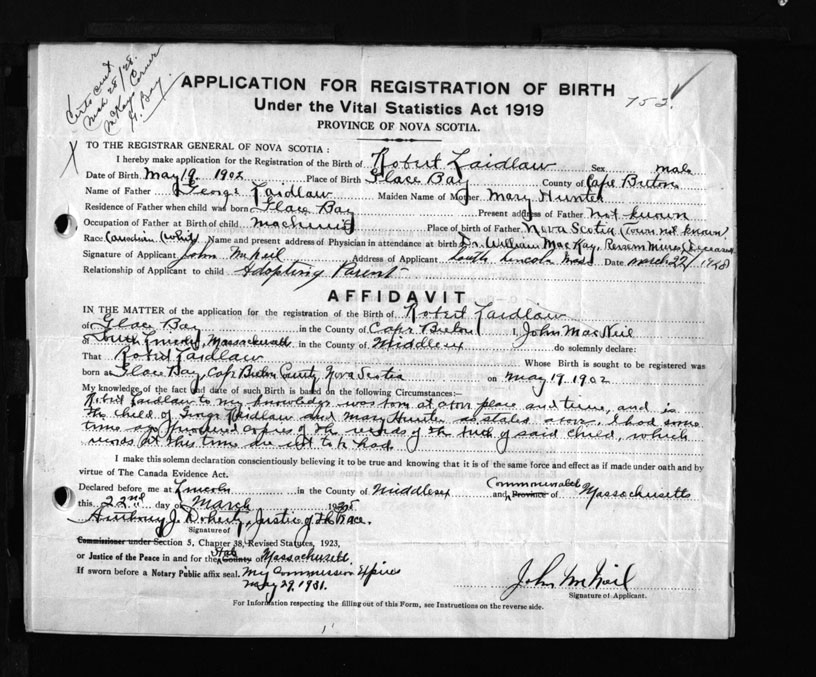 Certs sent
Mch 28/28
McKay's Corner
G. Bay.
APPLICATION FOR REGISTRATION OF BIRTH
Under the Vital Statistics Act 1919
752
PROVINCE OF NOVA SCOTIA.
X TO THE REGISTRAR GENERAL OF NOVA SCOTIA:
I hereby make application for the Registration of the Birth of Robert Laidlaw Sex male
Date of Birth May 19. 1902 Place of Birth Glace Bay County of Cape Breton
Name of Father George Laidlaw Maiden Name of Mother Mary Hunter
Residence of Father when child was born Glace Bay Present address of Father not known
Occupation of Father at Birth of child Machinist Place of birth of Father Nova Scotia (town not known)
Race Canadian (white) Name and present address of Physician in attendance at birth Dr. William MacKay, Reserve Mines (Deceased)
Signature of Applicant John McNeil Address of Applicant South Lincoln Mass Date March 22/1928
Relationship of Applicant to child Adopting Parent
AFFIDAVIT
IN THE MATTER of the application for the registration of the Birth of Robert Laidlaw
of Glace Bay in the County of Cape Breton I, John MacNeil
of South Lincoln, Massachusetts in the County of Middlesex do solemnly declare:
That Robert Laidlaw Whose Birth is sought to be registered was
born at Glace Bay, Cape Breton County Nova Scotia on May 19. 1902
My knowledge of the fact and date of such Birth is based on the following Circumstances:—
Robert Laidlaw to my knowledge was born at above place and time, and is
the child of George Laidlaw and Mary Hunter as stated above. I had some
time ago procured copies of the records of the birth of said child, which
records at this time are not to be had.
I make this solemn declaration conscientiously believing it to be true and knowing that it is of the same force and effect as if made under oath and by
virtue of The Canada Evidence Act.
Declared before me at Lincoln in the County of Middlesex and Province Commonwealth of Massachusetts
this 22nd day of March
Anthony J. Doherty, Justice of the Peace.
Signature of
Commissioner under Section 5, Chapter 38, Revised Statutes, 1923,
or Justice of the Peace in and for the County State of Massachusetts.
If sworn before a Notary Public affix seal. My Commission Expires
May 29. 1931.
John McNeil
Signature of Applicant.
For Information respecting the filling out of this Form, see Instructions on the reverse side.